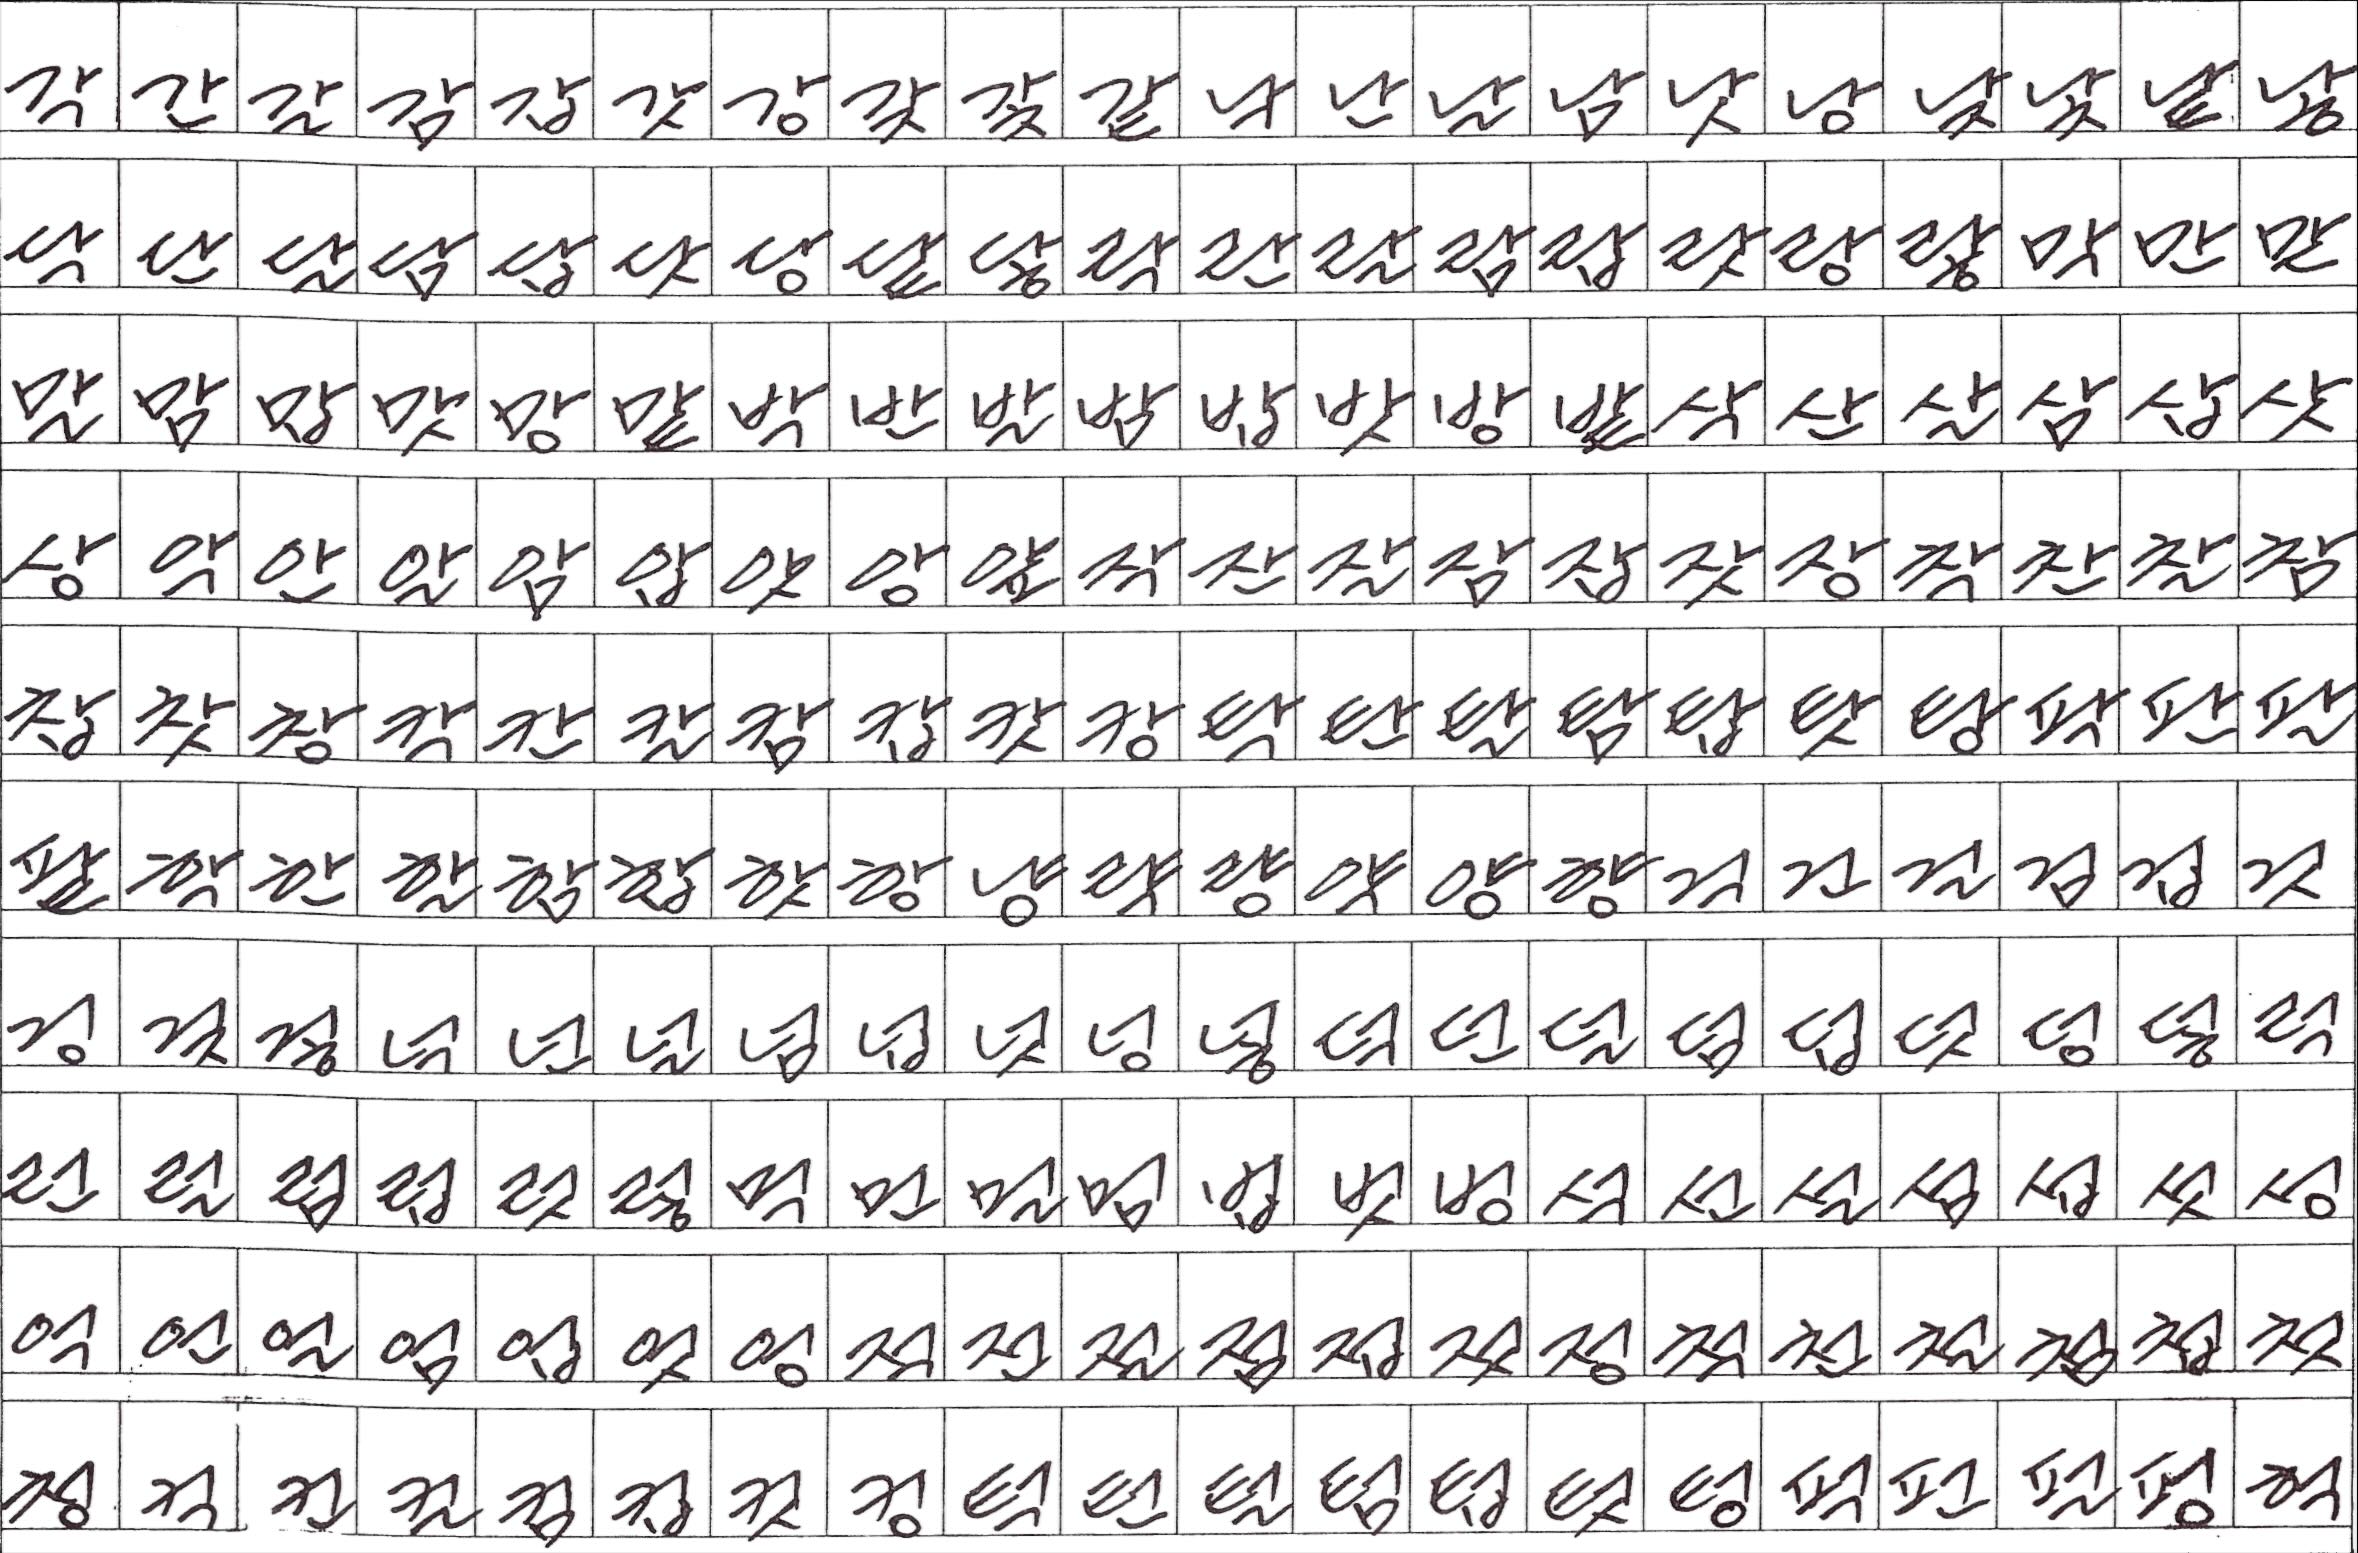 각 간 갈 감 갑 갓 강 갖 갗 같 낙 난 날 남 낫 낭 낮 낯 낱 낳
닥 단 달 담 답 닷 당 닽 닿 락 란 랄 람 랍 랏 랑 랗 막 만 맏
말 맘 맙 맛 망 맡 박 반 발 밤 밥 밧 방 밭 삭 산 살 삼 삽 삿
상 악 안 알 암 압 앗 앙 앞 작 잔 잘 잠 잡 잣 장 착 찬 찰 참
찹 찻 창 칵 칸 칼 캄 캅 캇 캉 탁 탄 탈 탐 탑 탓 탕 팍 판 팔
팥 학 한 할 함 합 핫 항 냥 략 량 약 양 향 걱 건 걸 검 겁 것
겅 겆 겋 넉 넌 널 넘 넙 넛 넝 넣 덕 던 덜 덤 덥 덧 덩 덯 럭
런 럴 럼 럽 럿 렇 먹 먼 멀 멈 법 벗 벙 석 선 설 섬 섭 섯 성
억 언 얼 엄 업 엇 엉 적 전 절 점 접 젓 정 척 천 철 첨 첩 첫
청 컥 컨 컬 컴 컵 컷 컹 턱 턴 털 텀 텁 텃 텅 퍽 펀 펄 펑 헉